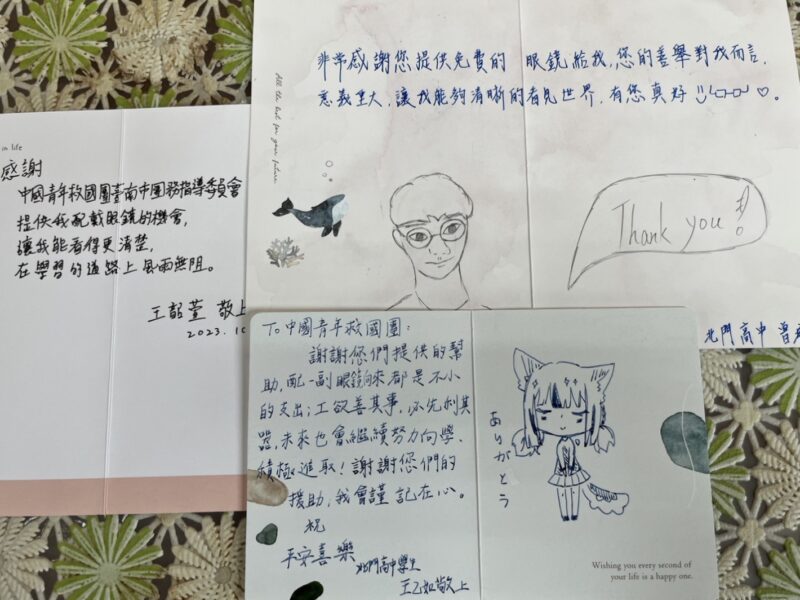 in life
感謝
中國青年救國團臺南市團務指導委員會
提供我配戴眼鏡的機會,
讓我能看得更清楚,
在學習的道路上風雨無阻。
王韶萱 敬上
2023.10
All the best for your future.
非常感謝您提供免費的 眼鏡給我,您的善舉對我而言,
意義重大,讓我能夠清晰的看見世界,有您真好
Thank you!
北門高中 曾
To 中國青年救國團:
謝謝您們提供的幫
助,配一副眼鏡向來都是不小
的支出;工欲善其事,必先利其
器,未來也會繼續努力向學、
積極進取!謝謝您們的
援助,我會謹記在心。
祝
平安喜樂
北門高中學生
王乙如敬上
ありがとう
Wishing you every second of
your life is a happy one.